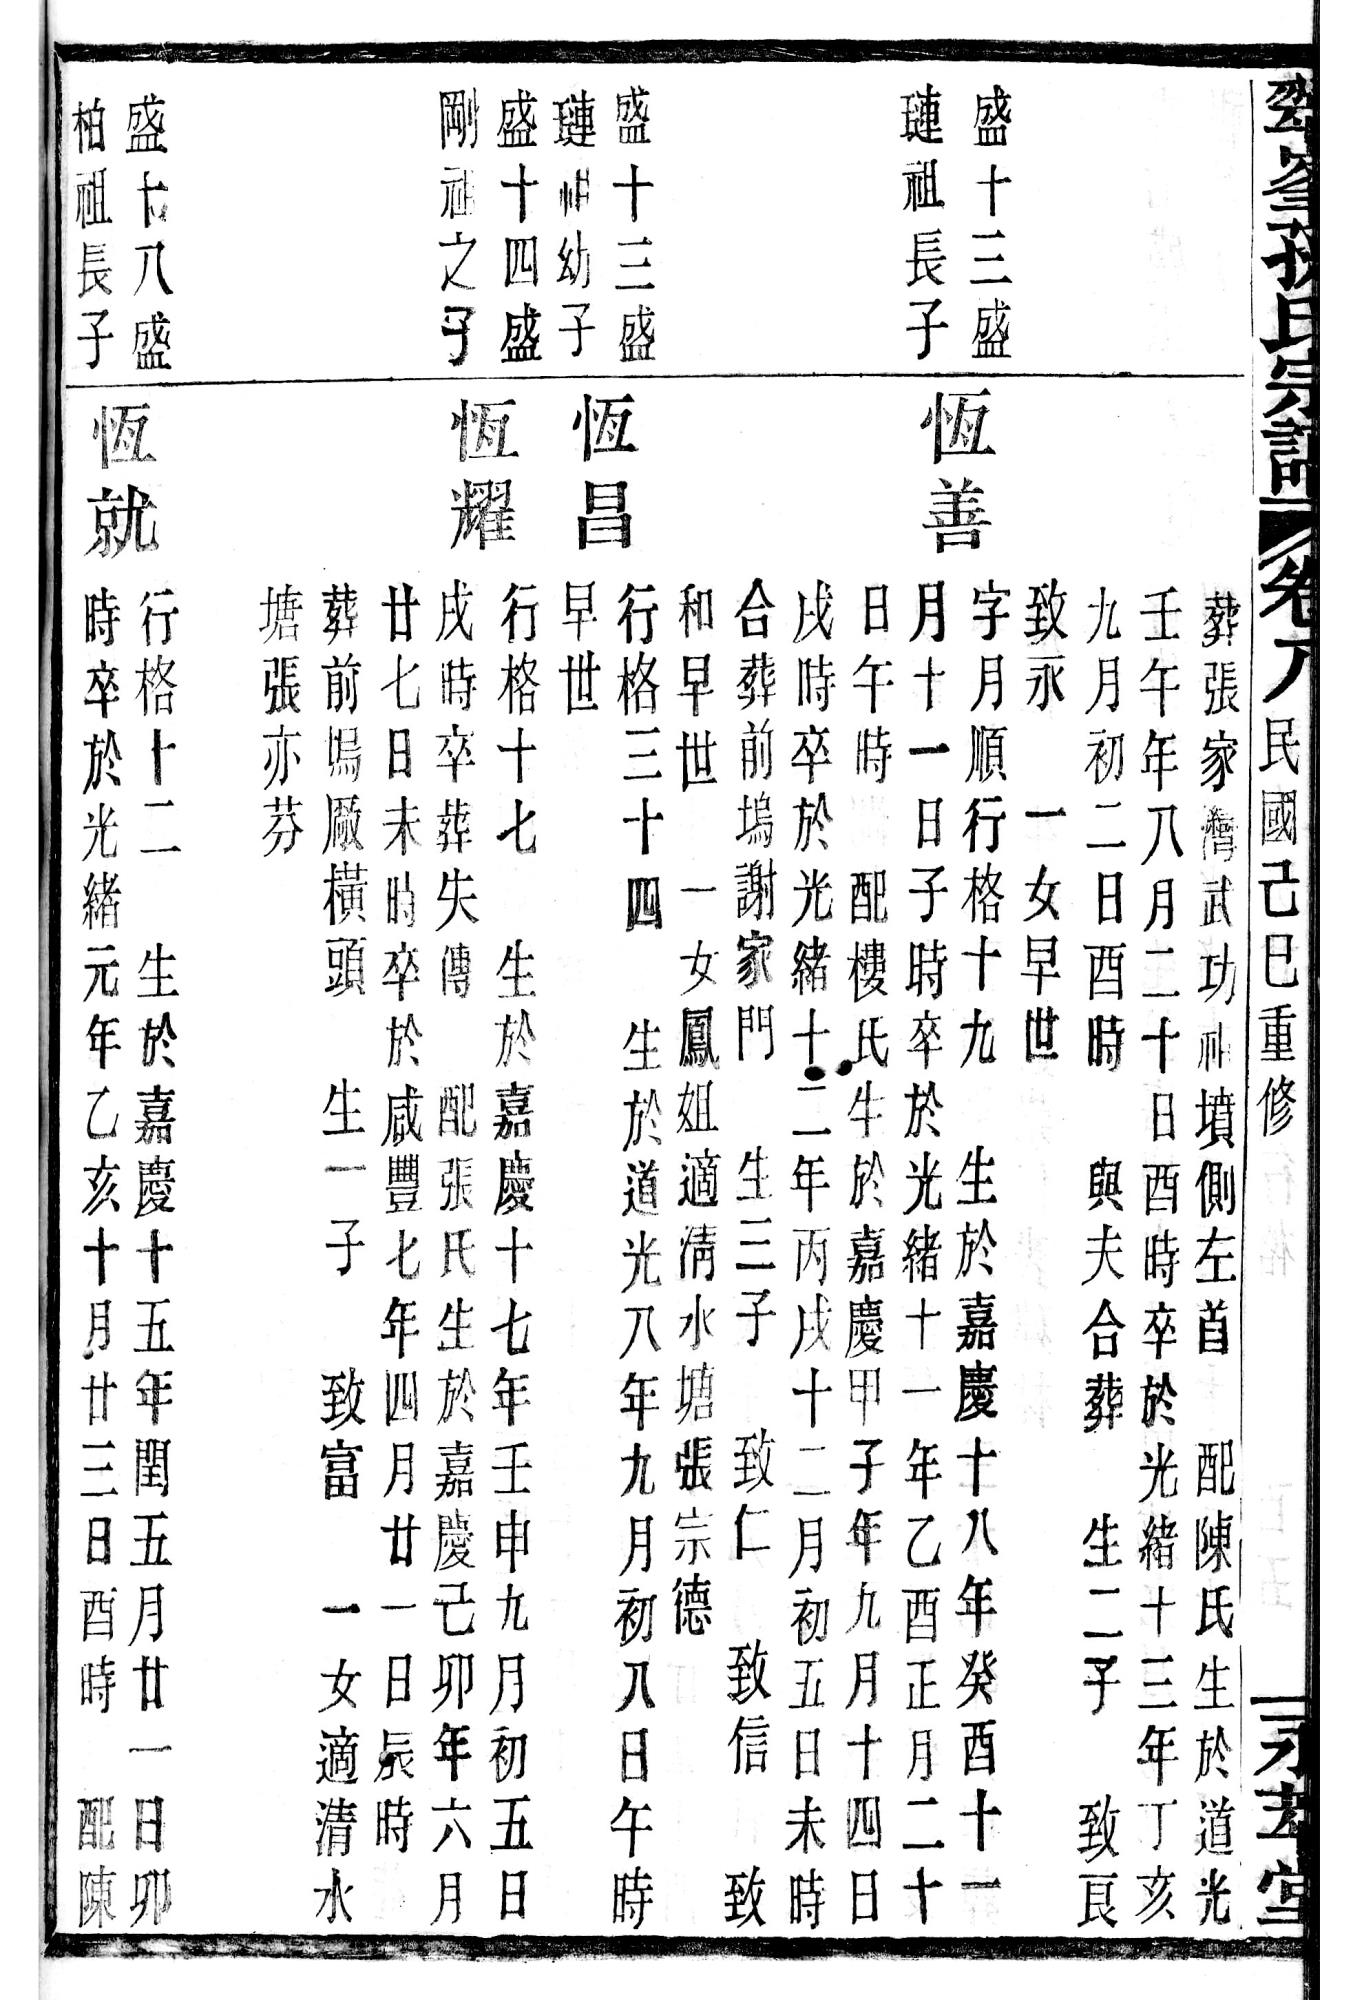 峯孫氏宗譜 卷八 民國己巳重修 永萃堂
葬張家灣武功神墳側左首 配陳氏生於道光
壬午年八月二十日酉時卒於光緒十三年丁亥
九月初二日酉時 與夫合葬 生二子 致良
致永 一女早世
盛十三盛
璉祖長子
恆善
字月順行格十九 生於嘉慶十八年癸酉十一
月十一日子時卒於光緒十一年乙酉正月二十
日午時 配樓氏生於嘉慶甲子年九月十四日
戌時卒於光緒十二年丙戌十二月初五日未時
合葬前塢謝家門 生三子 致仁 致信 致
和早世 一女鳳姐適清水塘張宗德
盛十三盛
璉祖幼子
恆昌
行格三十四 生於道光八年九月初八日午時
早世
盛十四盛
剛祖之子
恆耀
行格十七 生於嘉慶十七年壬申九月初五日
戌時卒葬失傳 配張氏生於嘉慶己卯年六月
廿七日未時卒於咸豐七年四月廿一日辰時
葬前塢廠橫頭 生一子 致富 一女適清水
塘張亦芬
盛十八盛
柏祖長子
恆就
行格十二 生於嘉慶十五年閏五月廿一日卯
時卒於光緒元年乙亥十月廿三日酉時 配陳